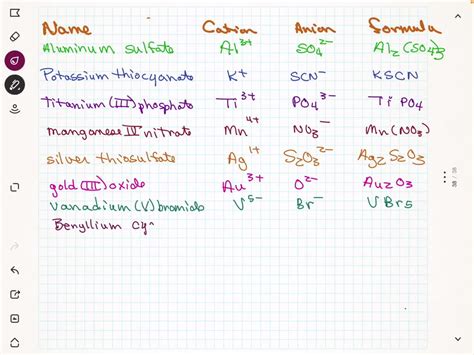 Name Cation Anion formula
Aluminum sulfate Al³⁺ SO₄²⁻ Al₂(SO₄)₃
Potassium thiocyanate K⁺ SCN⁻ KSCN
Titanium (III) phosphate Ti³⁺ PO₄³⁻ TiPO₄
manganese IV nitrate Mn⁴⁺ NO₃⁻ Mn(NO₃)
silver thiosulfate Ag¹⁺ S₂O₃²⁻ Ag₂S₂O₃
gold (III) oxide Au³⁺ O²⁻ Au₂O₃
Vanadium (V) bromide V⁵⁻ Br⁻ VBr₅
Beryllium Cy